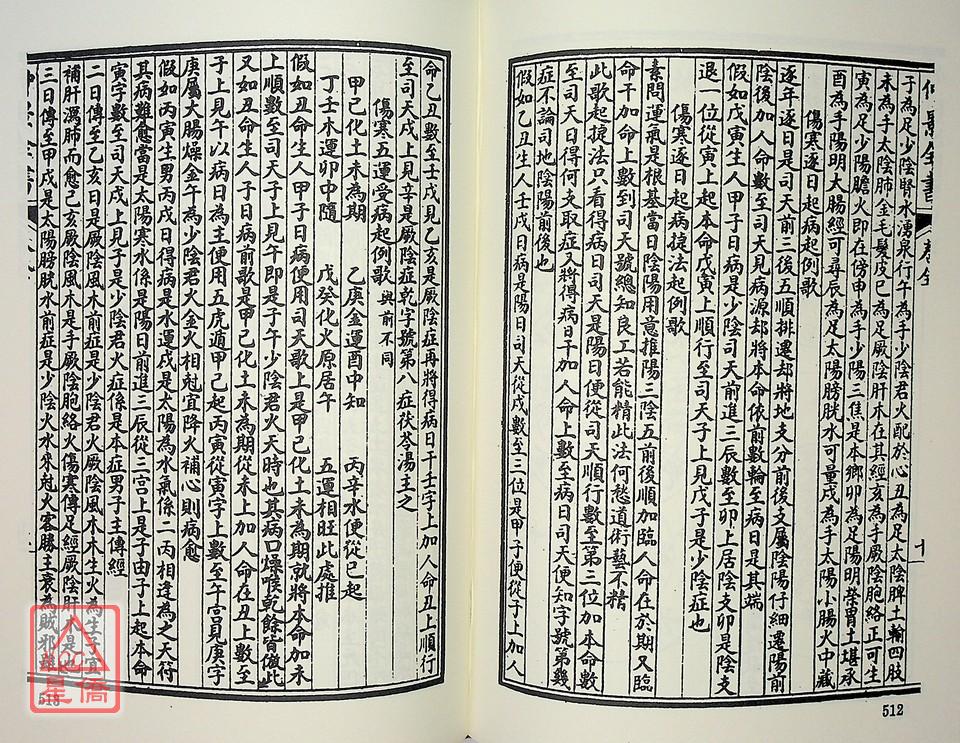 子為足少陰腎水湧泉行午為手少陰君火配於心丑為足太陰脾土輸四肢
未為手太陰肺金毛髮皮巳為足厥陰肝木在其經亥為手厥陰胞絡正可生
寅為足少陽膽火即在傍申為手少陽三焦是本鄉卯為足陽明榮胃土堪承
酉為手陽明大腸經可尋辰為足太陽膀胱水可量戌為手太陽小腸火中藏
傷寒逐日起病起例歌
逐年逐日是司天前三後五順排遷却將地支分前後支屬陰陽仔細遷陽前
陰後加人命數至司天見病源却將本命依前數輪至病日是其端
假如戊寅生人甲子日病是少陰司天前進三辰數至卯上居陰支卯是陰支
退一位從寅上起本命戊寅上順行至司天子上見戊子是少陰症也
傷寒逐日起病㨗法起例歌
素問運氣是根基當日陰陽用意推陽三陰五前後順加臨人命在於期又臨
命干加命上數到司天號總知良工若能精此法何愁道術藝不精
此歌起㨗法只看得病日司天是陽日便從司天順行數至第三位加本命數
至司天日得何支取症又將得病日干加人命上數至病日司天便知字號第幾
症不論司地陰陽前後也
假如乙丑生人壬戌日病是陽日司天從戌數至三位是甲子便從子上加人
512
命乙丑數至壬戌見乙亥是厥陰症再將得病日干壬字上加人命丑上順行
至司天戌上見辛是厥陰症乾字號第八症茯苓湯主之
傷寒五運受病起例歌 與前不同
甲己化土未為期 乙庚金運酉中知 丙辛水便從巳起
丁壬木運卯中隨 戊癸化火原居午 五運相旺此處推
假如丑命生人甲子日病便用司天歌上是甲己化土未為期就將本命加未
上順數至司天子日子上見午即是子午少陰君火天時也其病口燥喉乾餘皆倣此
又如丑命生人子日病前歌是甲己化土未為期從未上加人命在丑上數至
子上見午以病日為主便用五虎遁甲己起丙寅從寅字上數至午宮見庚字
庚屬大腸燥金午為少陰君火金火相尅宜降火補心則病愈
假如丙寅生男丙戌日得病是水運戌是太陽為水氣係二丙相逢為之天符
其病難愈當是太陽寒水係是陽日前進三辰從三宮上是子由子上起本命
寅字數至司天戌上見子是少陰君火症係是本症男子主傳經
二日傳至乙亥日是厥陰風木前症是少陰君火厥陰風木木生火為生子宜
補肝瀉肺而愈己亥厥陰風木是手厥陰胞絡火傷寒傳足經厥陰肝木是也
三日傳至甲戌是太陽膀胱水前症是少陰火水來尅火客勝主衰為賊邪雖
513